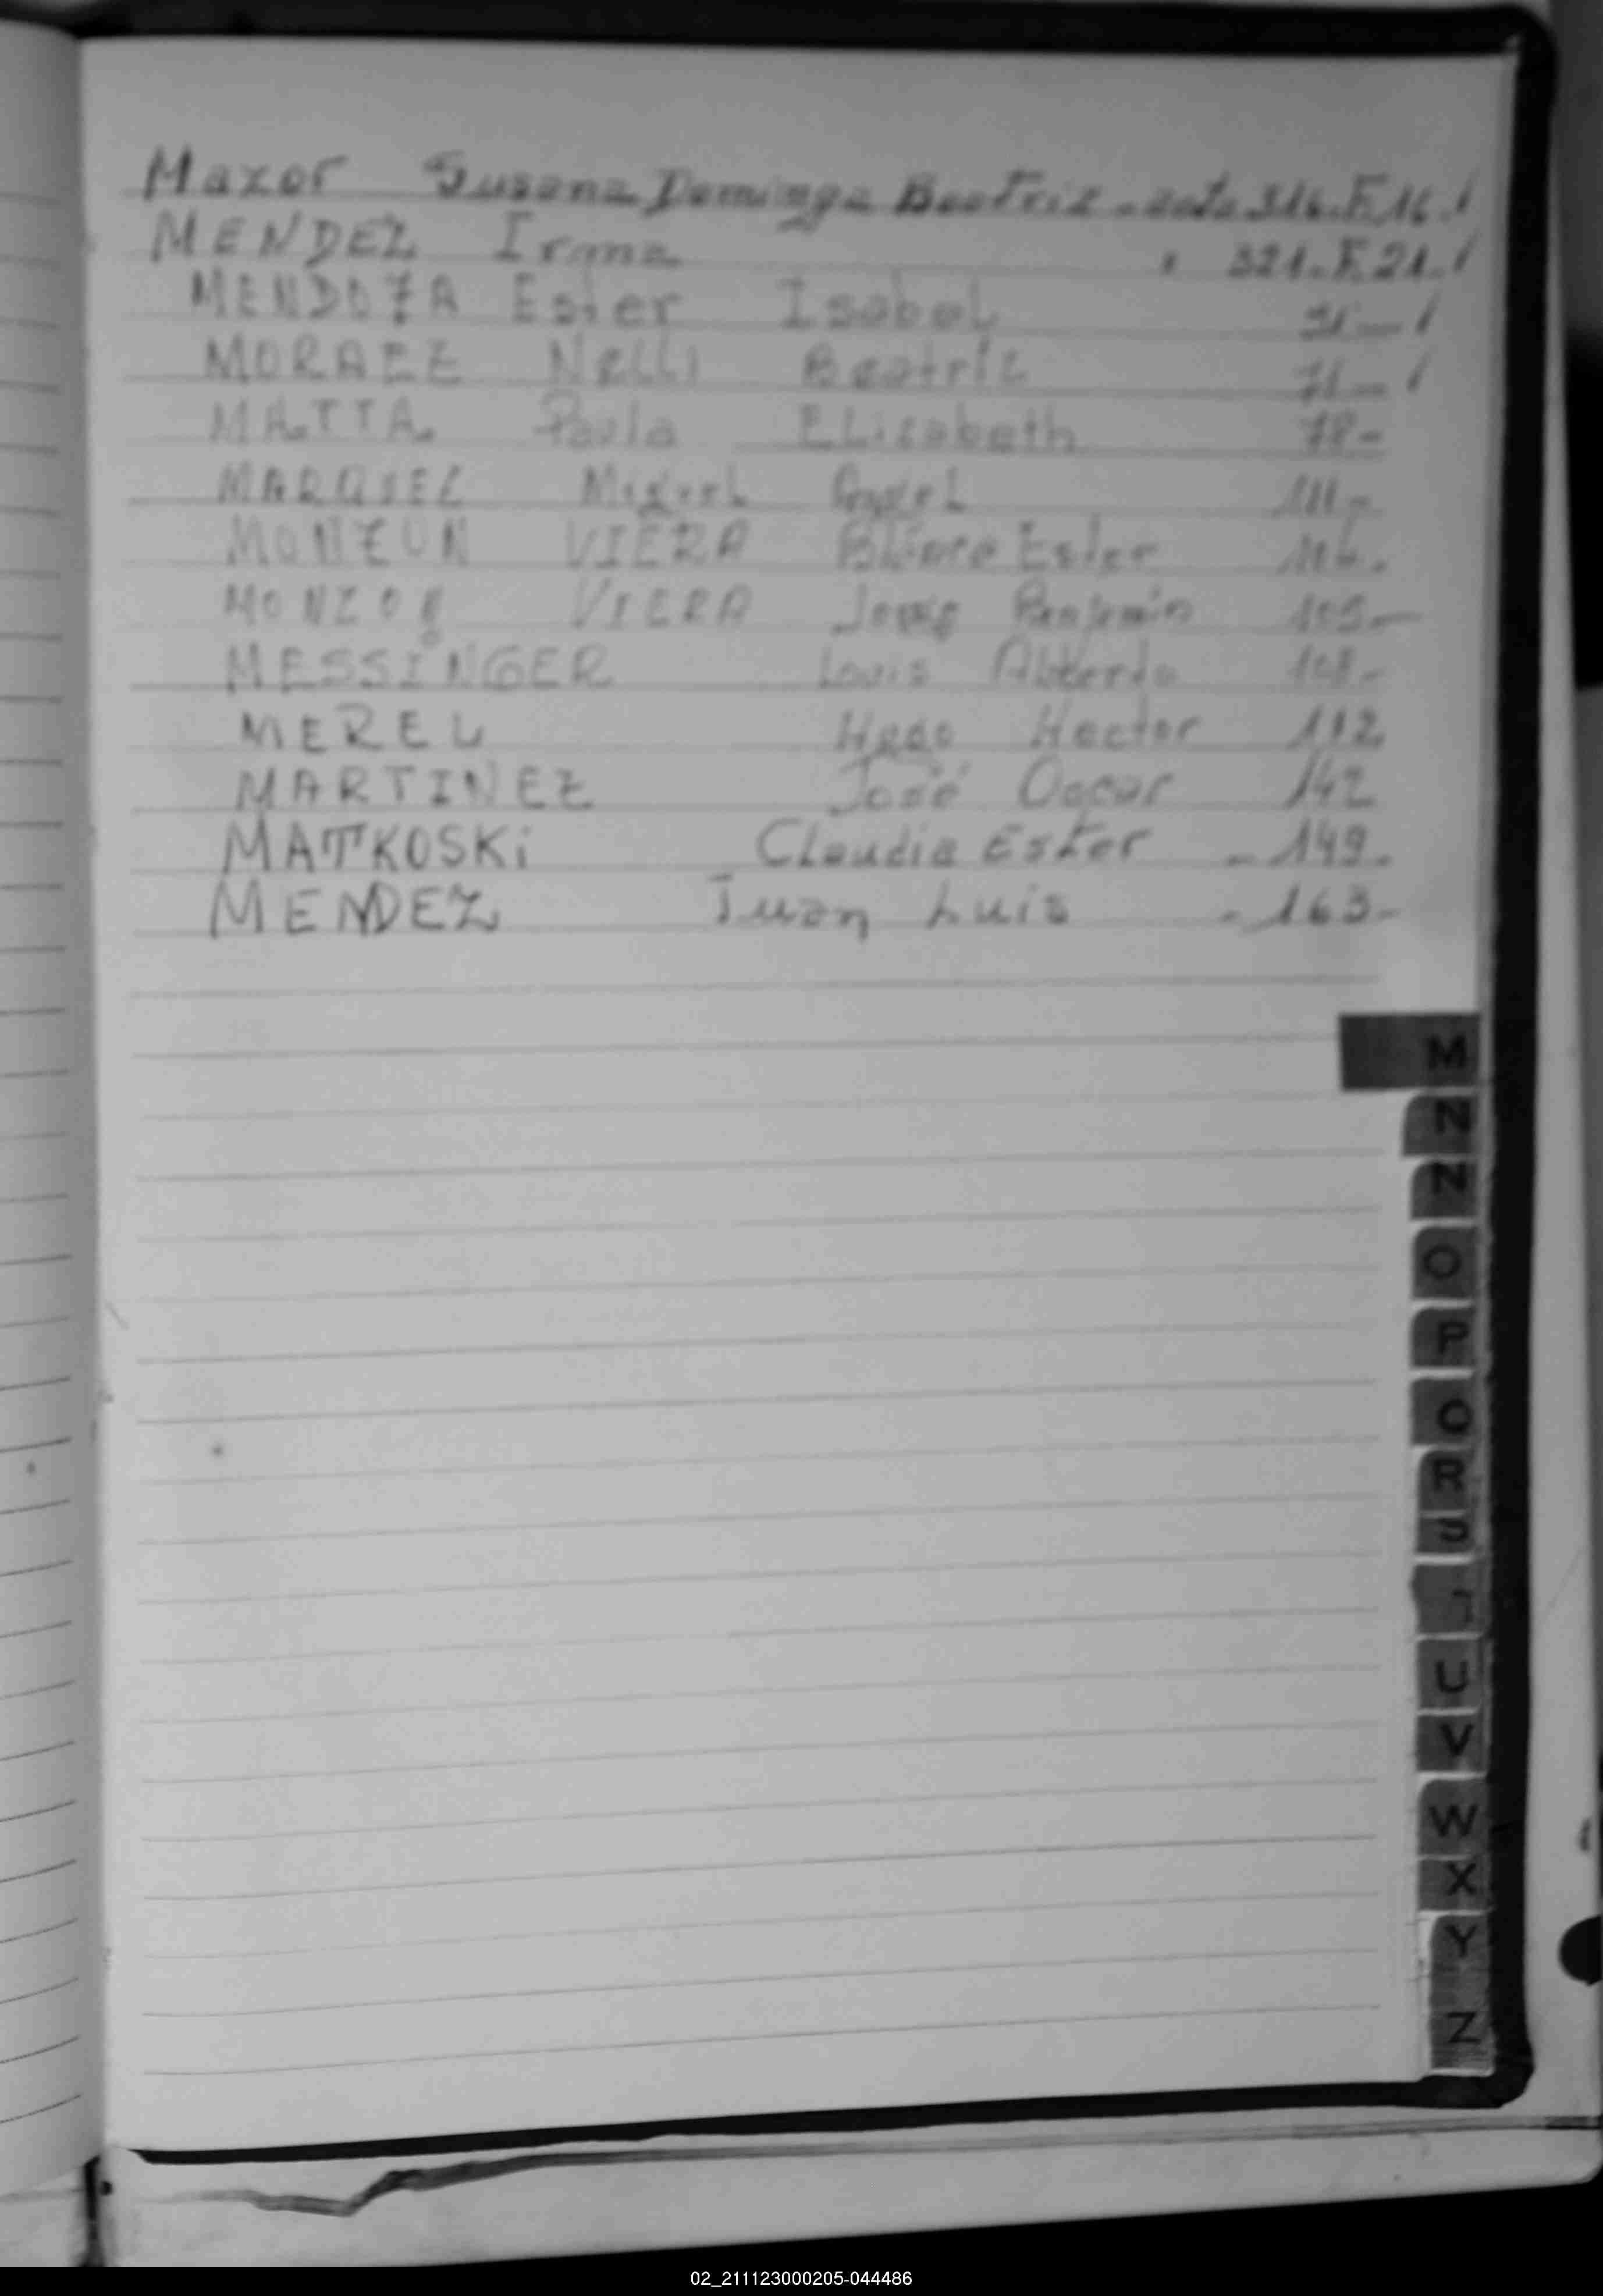 Maxor Susana Dominga Beatriz - acta 316. F. 16. /
MENDEZ Irma " 321. F. 21. /
MENDOZA Ester Isabel 31 — /
MORAEZ Nelli Beatriz 71 — /
MATTA Paula ELizabeth 78 -
MARQUEZ Miguel Angel 111 -
MONZON VIERA Ester
MONZON VIERA Jorge Benjamín 105 —
MESSINGER Louis Alberto 108 -
MEREL Hugo Hector 112
MARTINEZ José Oscar 142
MATTKOSKi Claudia Ester - 149 -
MENDEZ Juan Luis - 163 -
M
N
N
O
P
Q
R
S
U
V
W
X
Y
Z
02_211123000205-044486